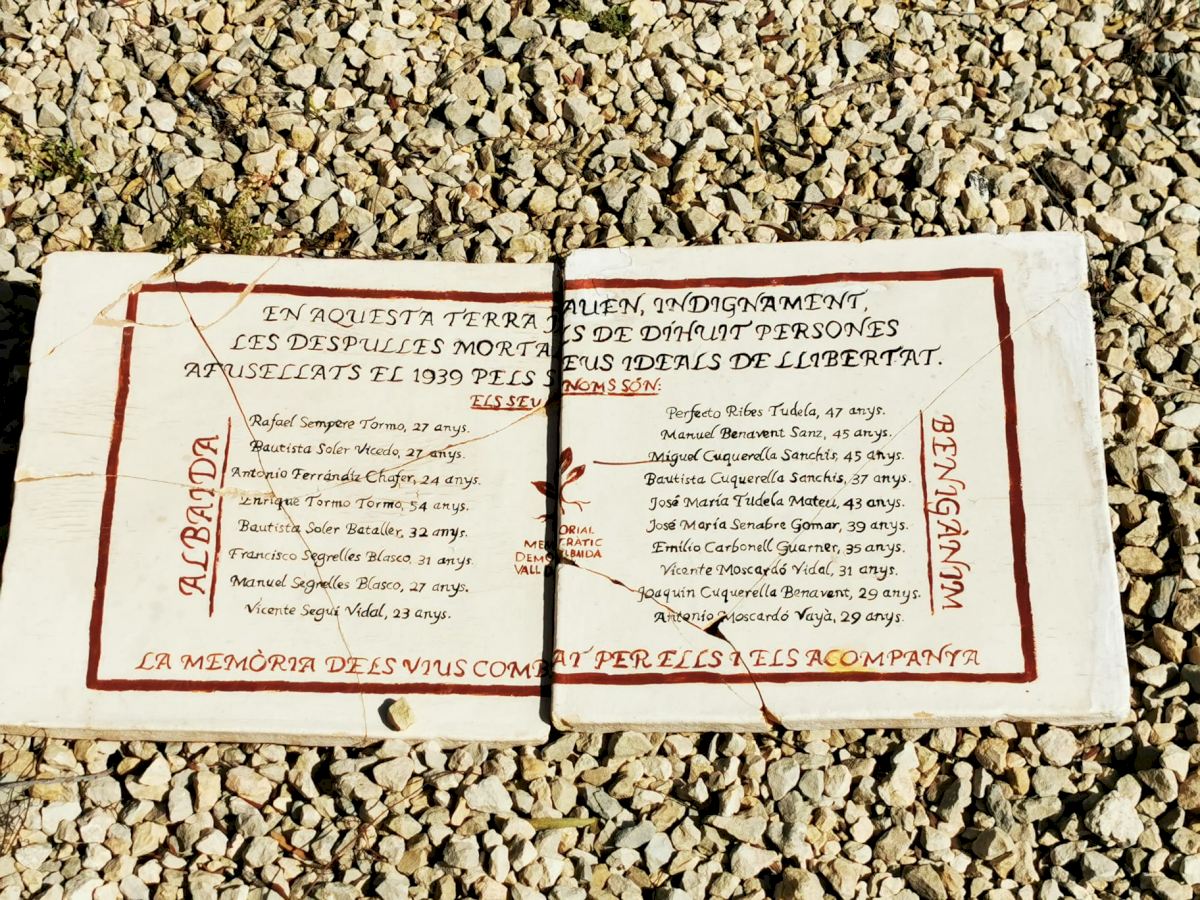 EN AQUESTA TERRA JAUEN, INDIGNAMENT,
LES DESPULLES MORTALS DE DIHUIT PERSONES
AFUSELLATS EL 1939 PELS SEUS IDEALS DE LLIBERTAT.
ELS SEUS NOMS SÓN:
ALBAIDA
Rafael Sempere Tormo, 27 anys.
Bautista Soler Vicedo, 27 anys.
Antonio Ferrándiz Chafer, 24 anys.
Enrique Tormo Tormo, 54 anys.
Bautista Soler Bataller, 32 anys.
Francisco Segrelles Blasco, 31 anys.
Manuel Segrelles Blasco, 27 anys.
Vicente Seguí Vidal, 23 anys.
MEMORIAL
DEMOCRÀTIC
VALL D'ALBAIDA
Perfecto Ribes Tudela, 47 anys.
Manuel Benavent Sanz, 45 anys.
Miguel Cuquerella Sanchis, 45 anys.
Bautista Cuquerella Sanchis, 37 anys.
José María Tudela Mateu, 43 anys.
José María Senabre Gomar, 39 anys.
Emilio Carbonell Guarner, 35 anys.
Vicente Moscardó Vidal, 31 anys.
Joaquin Cuquerella Benavent, 29 anys.
Antonio Moscardó Vayà, 29 anys.
BENIGÀNIM
LA MEMÒRIA DELS VIUS COMBAT PER ELLS I ELS ACOMPANYA